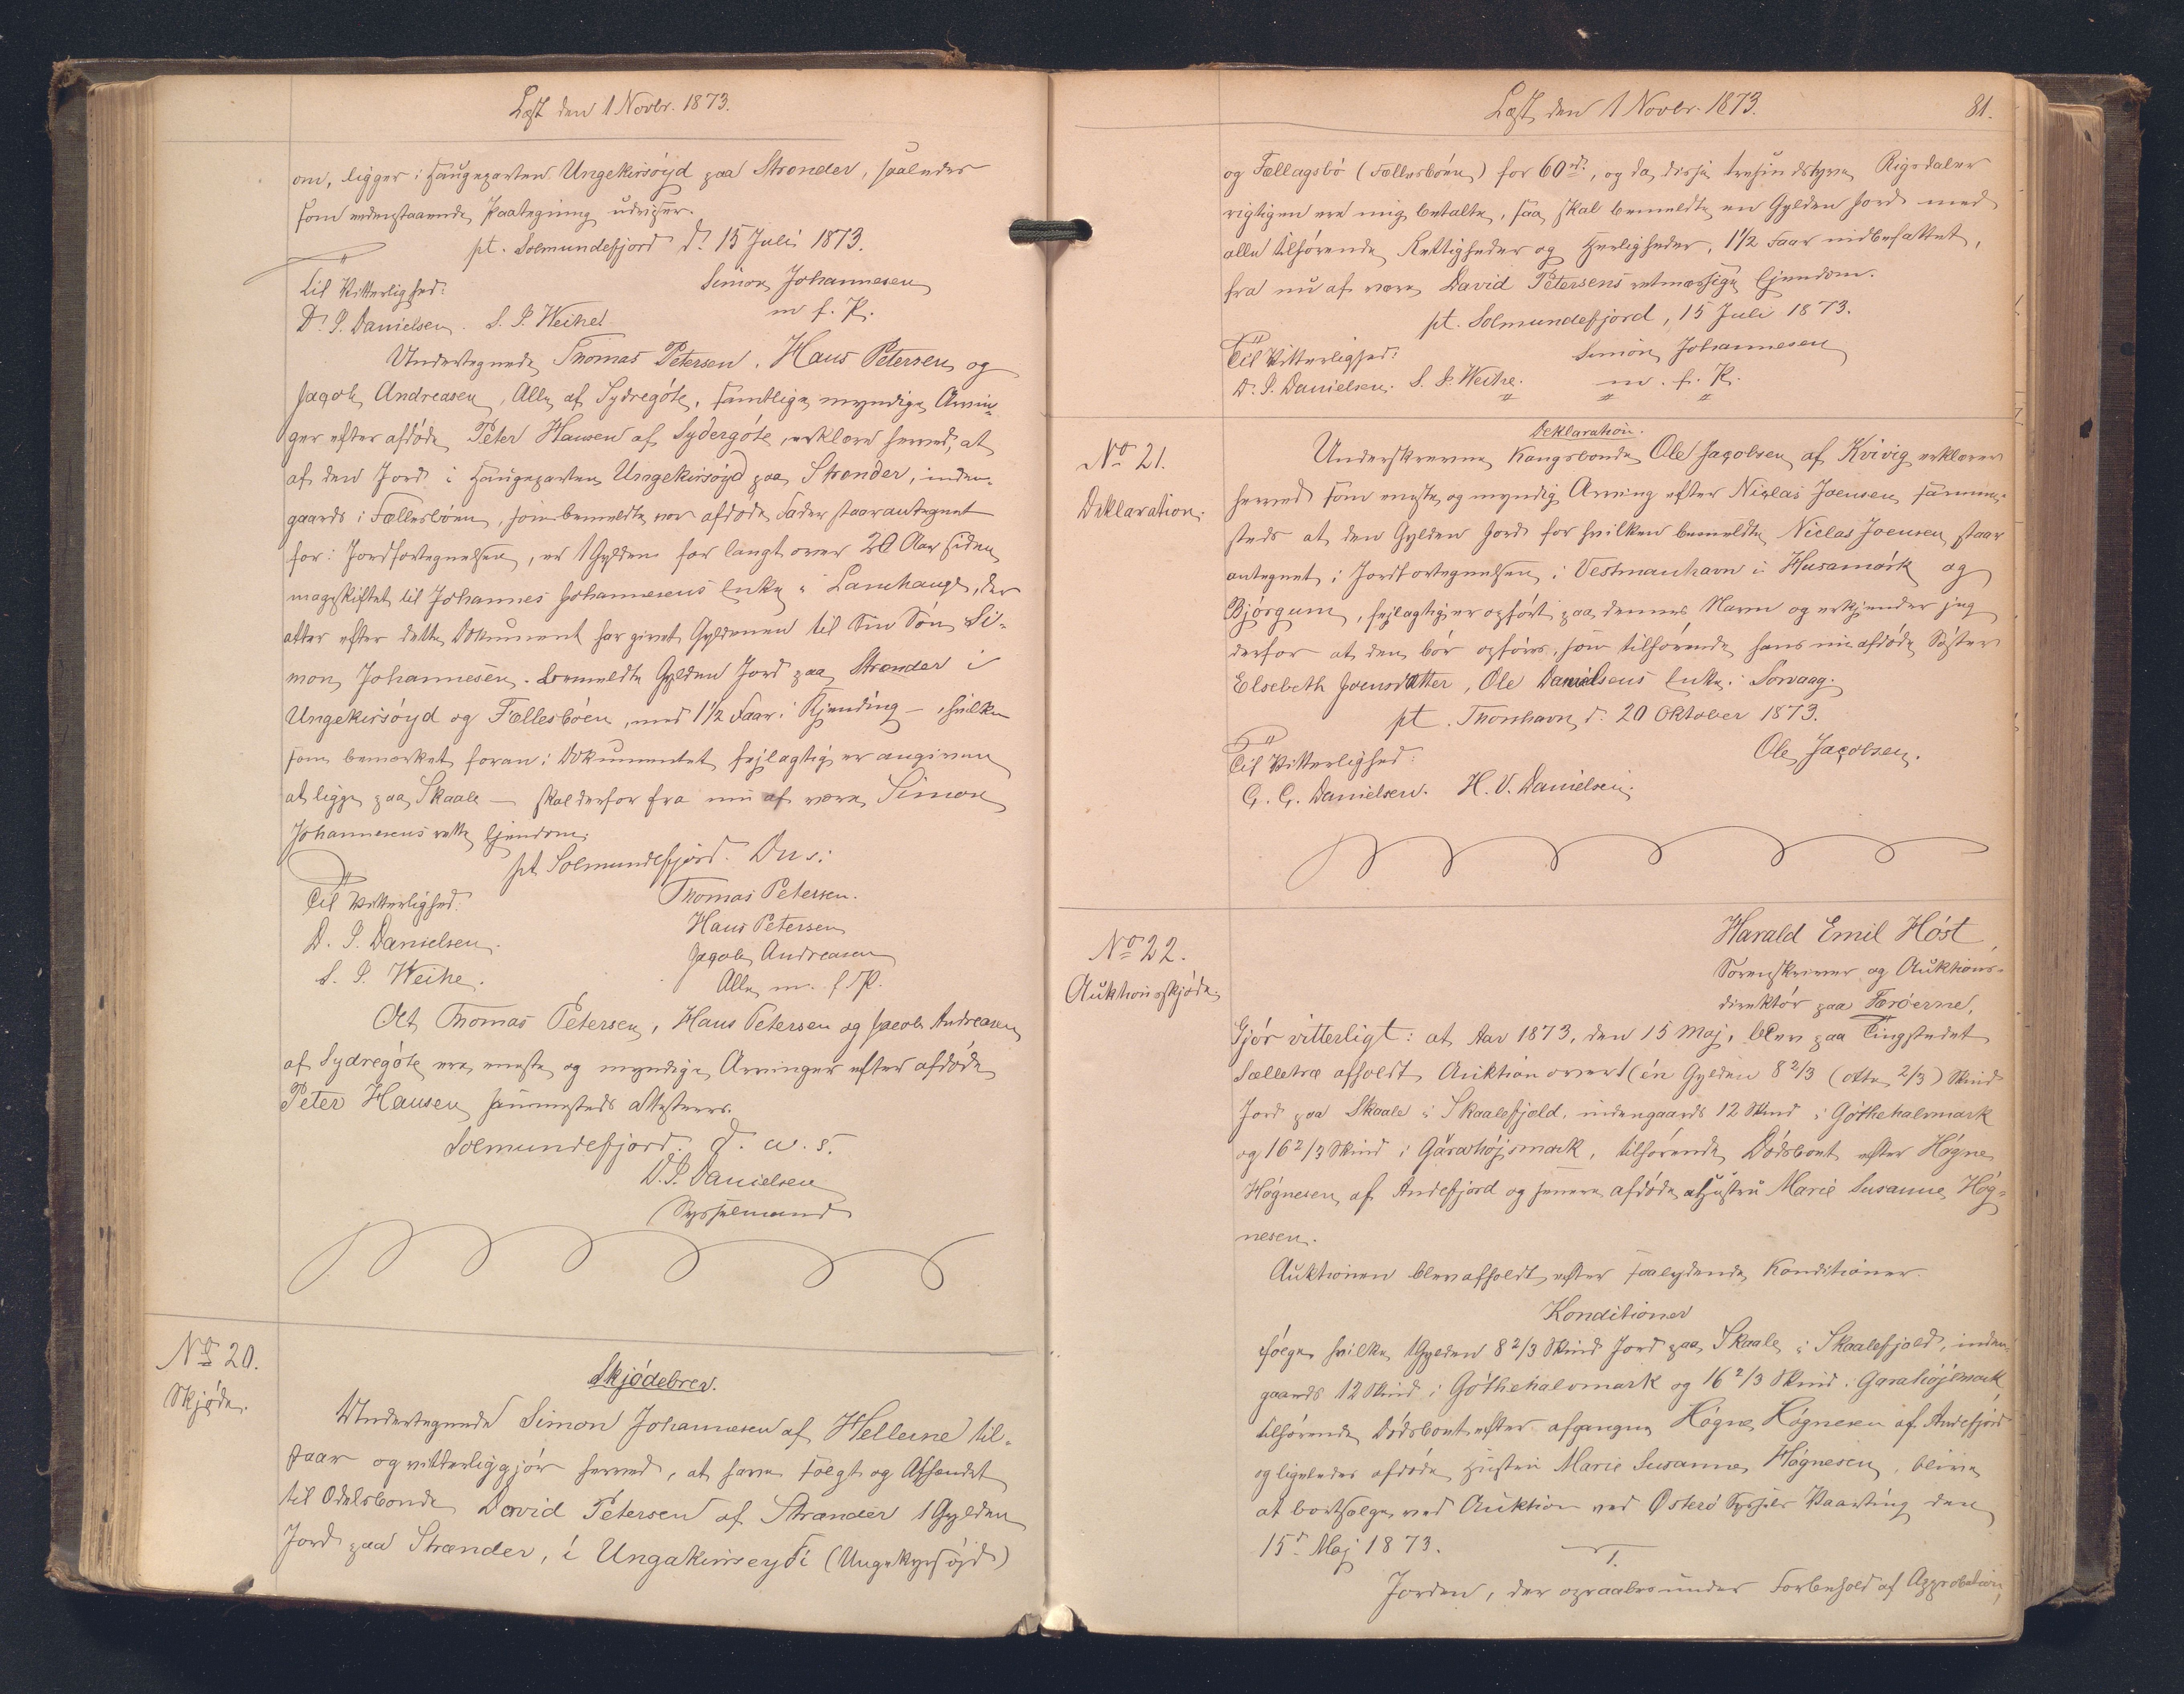 Læst den 1 Novbr. 1873.
om, ligger i Haugeparten Ungekirsöyd paa Strænder, saaledes
som nedenstaaende Paategning udviser.
pt. Solmundefjord d. 15 Juli 1873.
Til Vitterlighed:
Simon Johannesen
D. P. Danielsen. S. P. Weihe.
m. f. P.
Undertegnede Thomas Petersen, Hans Petersen og
Jacob Andreasen, Alle af Sydregöte, samtlige myndige Arvin-
ger efter afdöde Peter Hansen af Sydergöte, erklære herved, at
af den Jord i Haugeparten Ungekirsöyd paa Strænder, inden-
gaards i Fællesböen, som bemeldte vor afdöde Fader staar antegnet
for i Jordfortegnelsen, er 1 Gylden for langt over 20 Aar siden
mageskiftet til Johannes Johannesens Enke i Lamhauge, der
atter efter dette Dokument har givet Gyldenen til Sin Sön Si-
mon Johannesen. Bemeldte Gylden Jord paa Strænder i
Ungekirsöyd og Fællesböen, med 1½ Faar i Kjending – hvilken
som bemærket foran i Dokumentet fejlagtig er angiven
at ligge paa Skaale – skal derfor fra nu af være Simon
Johannesens rette Ejendom.
pt. Solmundefjord. D. u. s.
Til Vitterlighed:
Thomas Petersen.
D. P. Danielsen.
Hans Petersen
S. P. Weihe.
Jacob Andreasen
Alle m. f. P.
At Thomas Petersen, Hans Petersen og Jacob Andreasen
af Sydregöte ere eneste og myndige Arvinger efter afdöde
Peter Hansen sammesteds attesteres.
Solmundefjord. d. u. s.
D. P. Danielsen
Sysselmand
No 20.
Skjöde.
Skjödebrev.
Undertegnede Simon Johannesen af Hellerne til-
staar og vitterliggjör herved, at have solgt og Afhændet
til Odelsbonde David Petersen af Strænder 1 Gylden
Jord paa Strænder, i Ungakirseydi (Ungekyrsöjd)
Læst den 1 Novbr. 1873.
81.
og Fællagsbö (Fællesböen) for 60 rd, og da disse tresindstyve Rigsdaler
rigtigen ere mig betalte, saa skal bemeldte en Gylden Jord med
alle tilhörende Rettigheder og Herligheder, 1½ Faar indbefattet,
fra nu af være David Petersens retmæssige Ejendom.
pt. Solmundefjord, 15 Juli 1873.
Til Vitterlighed:
Simon Johannesen
D. P. Danielsen. S. P. Weihe.
m. f. P.
No 21.
Deklaration.
Deklaration.
Underskrevne Kongsbonde Ole Jacobsen af Kvivig erklærer
herved som eneste og myndig Arving efter Niclas Joensen samme-
steds at den Gylden Jord for hvilken bemeldte Niclas Joensen staar
antegnet i Jordfortegnelsen i Vestmanhavn i Husamörk og
Björgum, fejlagtig er opfört paa dennes Navn og erkjender jeg
derfor at den bör opföres, som tilhörende hans nu afdöde Söster
Elsebeth Joensdatter, Ole Danielsens Enke i Sorvaag.
pt. Thorshavn, d. 20 Oktober 1873.
Til Vitterlighed:
Ole Jacobsen.
C. C. Danielsen. H. V. Danielsen.
No 22.
Auktionsskjöde.
Harald Emil Höst,
Sorenskriver og Auktions-
direktör paa Færöerne,
Gjör vitterligt: at Aar 1873, den 15 Maj, blev paa Tingstedet
Sælletræ afholdt Auktion over 1 (én) Gylden 8 2/3 (otte 2/3) Skind
Jord paa Skaale i Skaalefjold, indengaards 12 Skind i Göthehalvmark
og 16 2/3 Skind i Garahöjsmark, tilhörende Dödsboet efter Högne
Högnesen af Andefjord og senere afdöde Hustru Marie Susanne Hög-
nesen.
Auktionen blev afholdt efter saalydende Konditioner.
Konditioner
ifölge hvilke 1 Gylden 8 2/3 Skind Jord paa Skaale i Skaalefjold, inden-
gaards 12 Skind i Göthehalvmark og 16 2/3 Skind i Garahöjsmark,
tilhörende Dödsboet efter afgangne Högne Högnesen af Andefjord
og ligeledes afdöde Hustru Marie Susanne Högnesen, blive
at bortsælge ved Auktion ved Österö Syssels Vaarting den
15d Maj 1873.
1.
Jorden, der opraabes under Forbehold af Approbation,